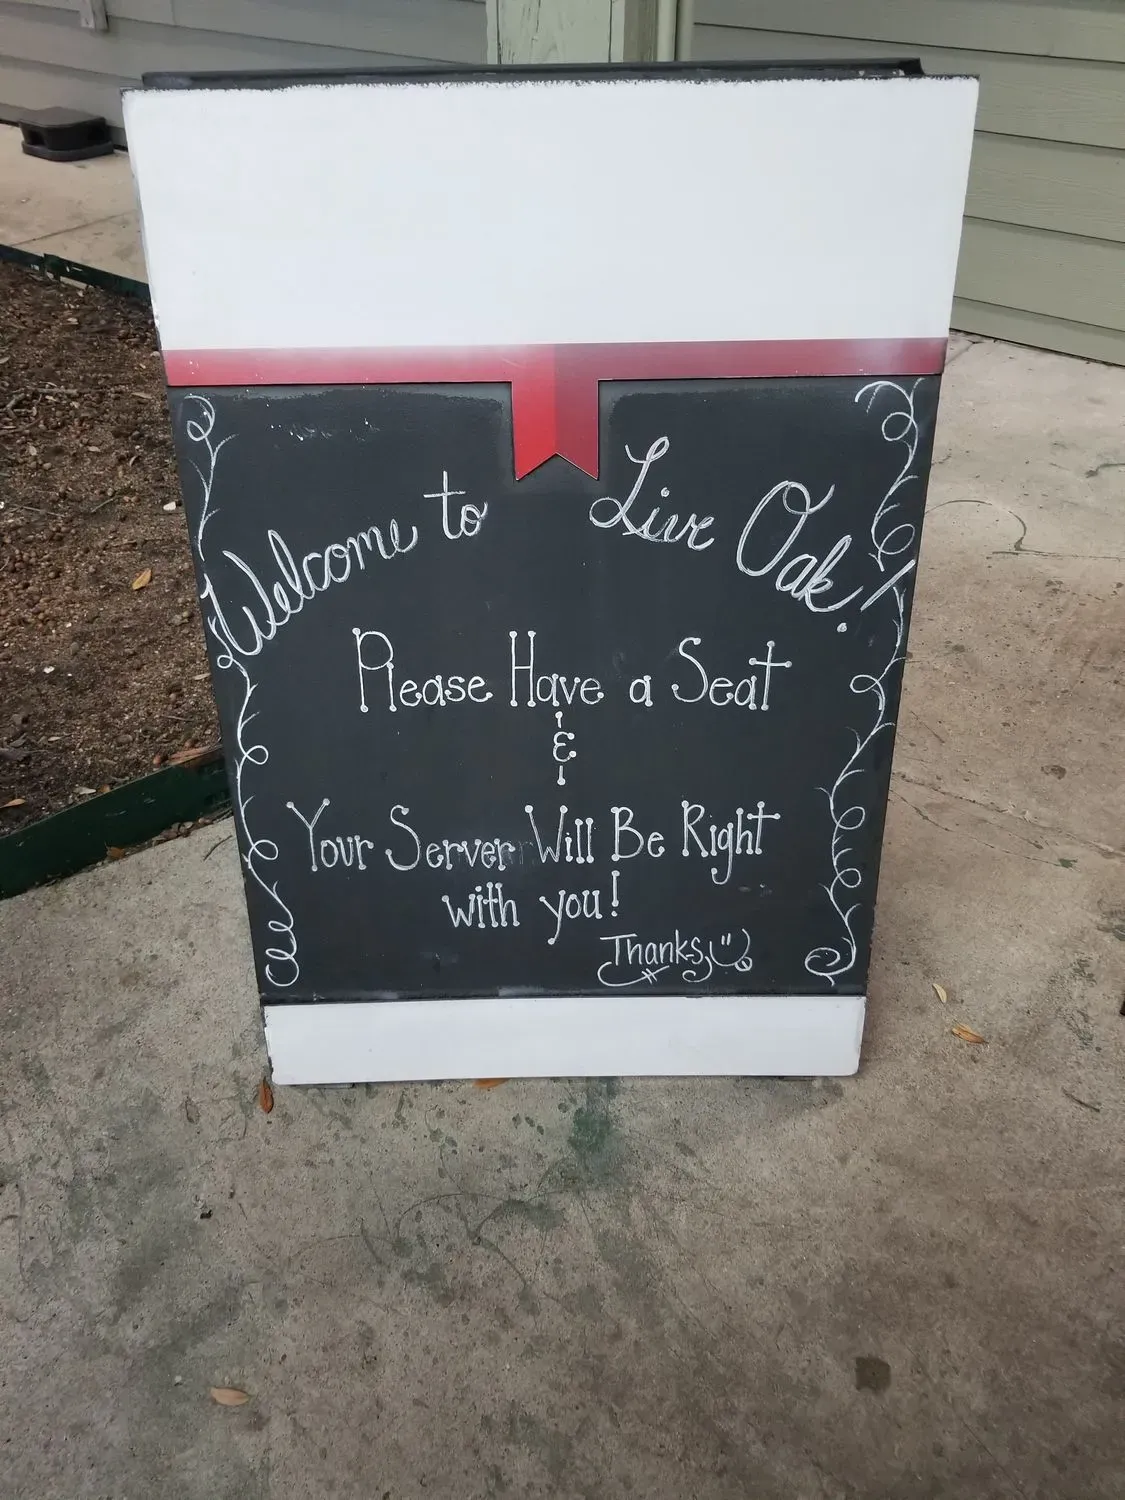 Welcome to Live Oak!
Please Have a Seat
&
Your Server Will Be Right
with you!
Thanks,